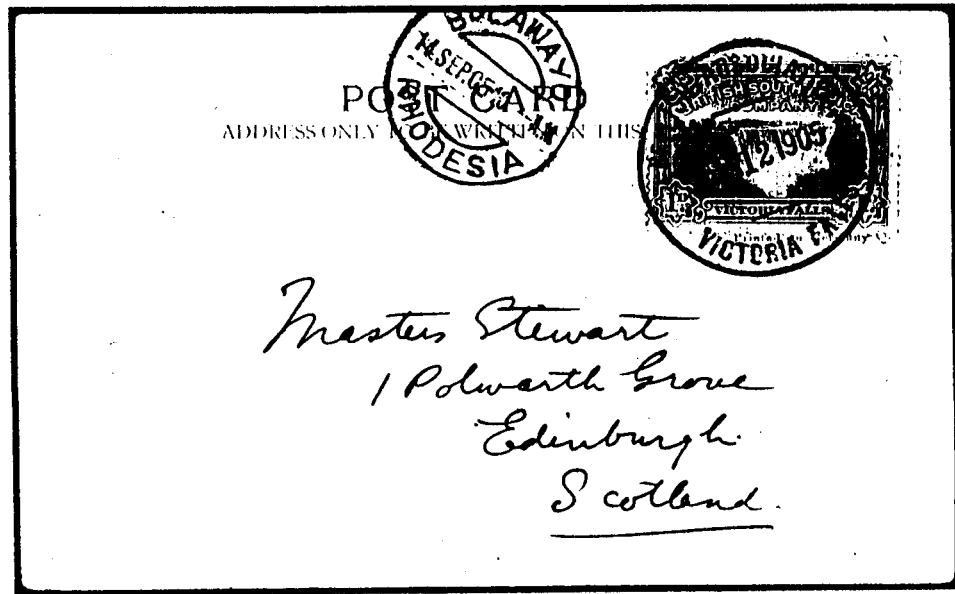 BULAWAYO
14 SEP 05
RHODESIA
POST CARD
ADDRESS ONLY TO BE WRITTEN ON THIS
BRITISH SOUTH
COMPANY
12 1905
1D
VICTORIA FALLS
VICTORIA
Masters Stewart
1 Polwarth Grove
Edinburgh.
Scotland.